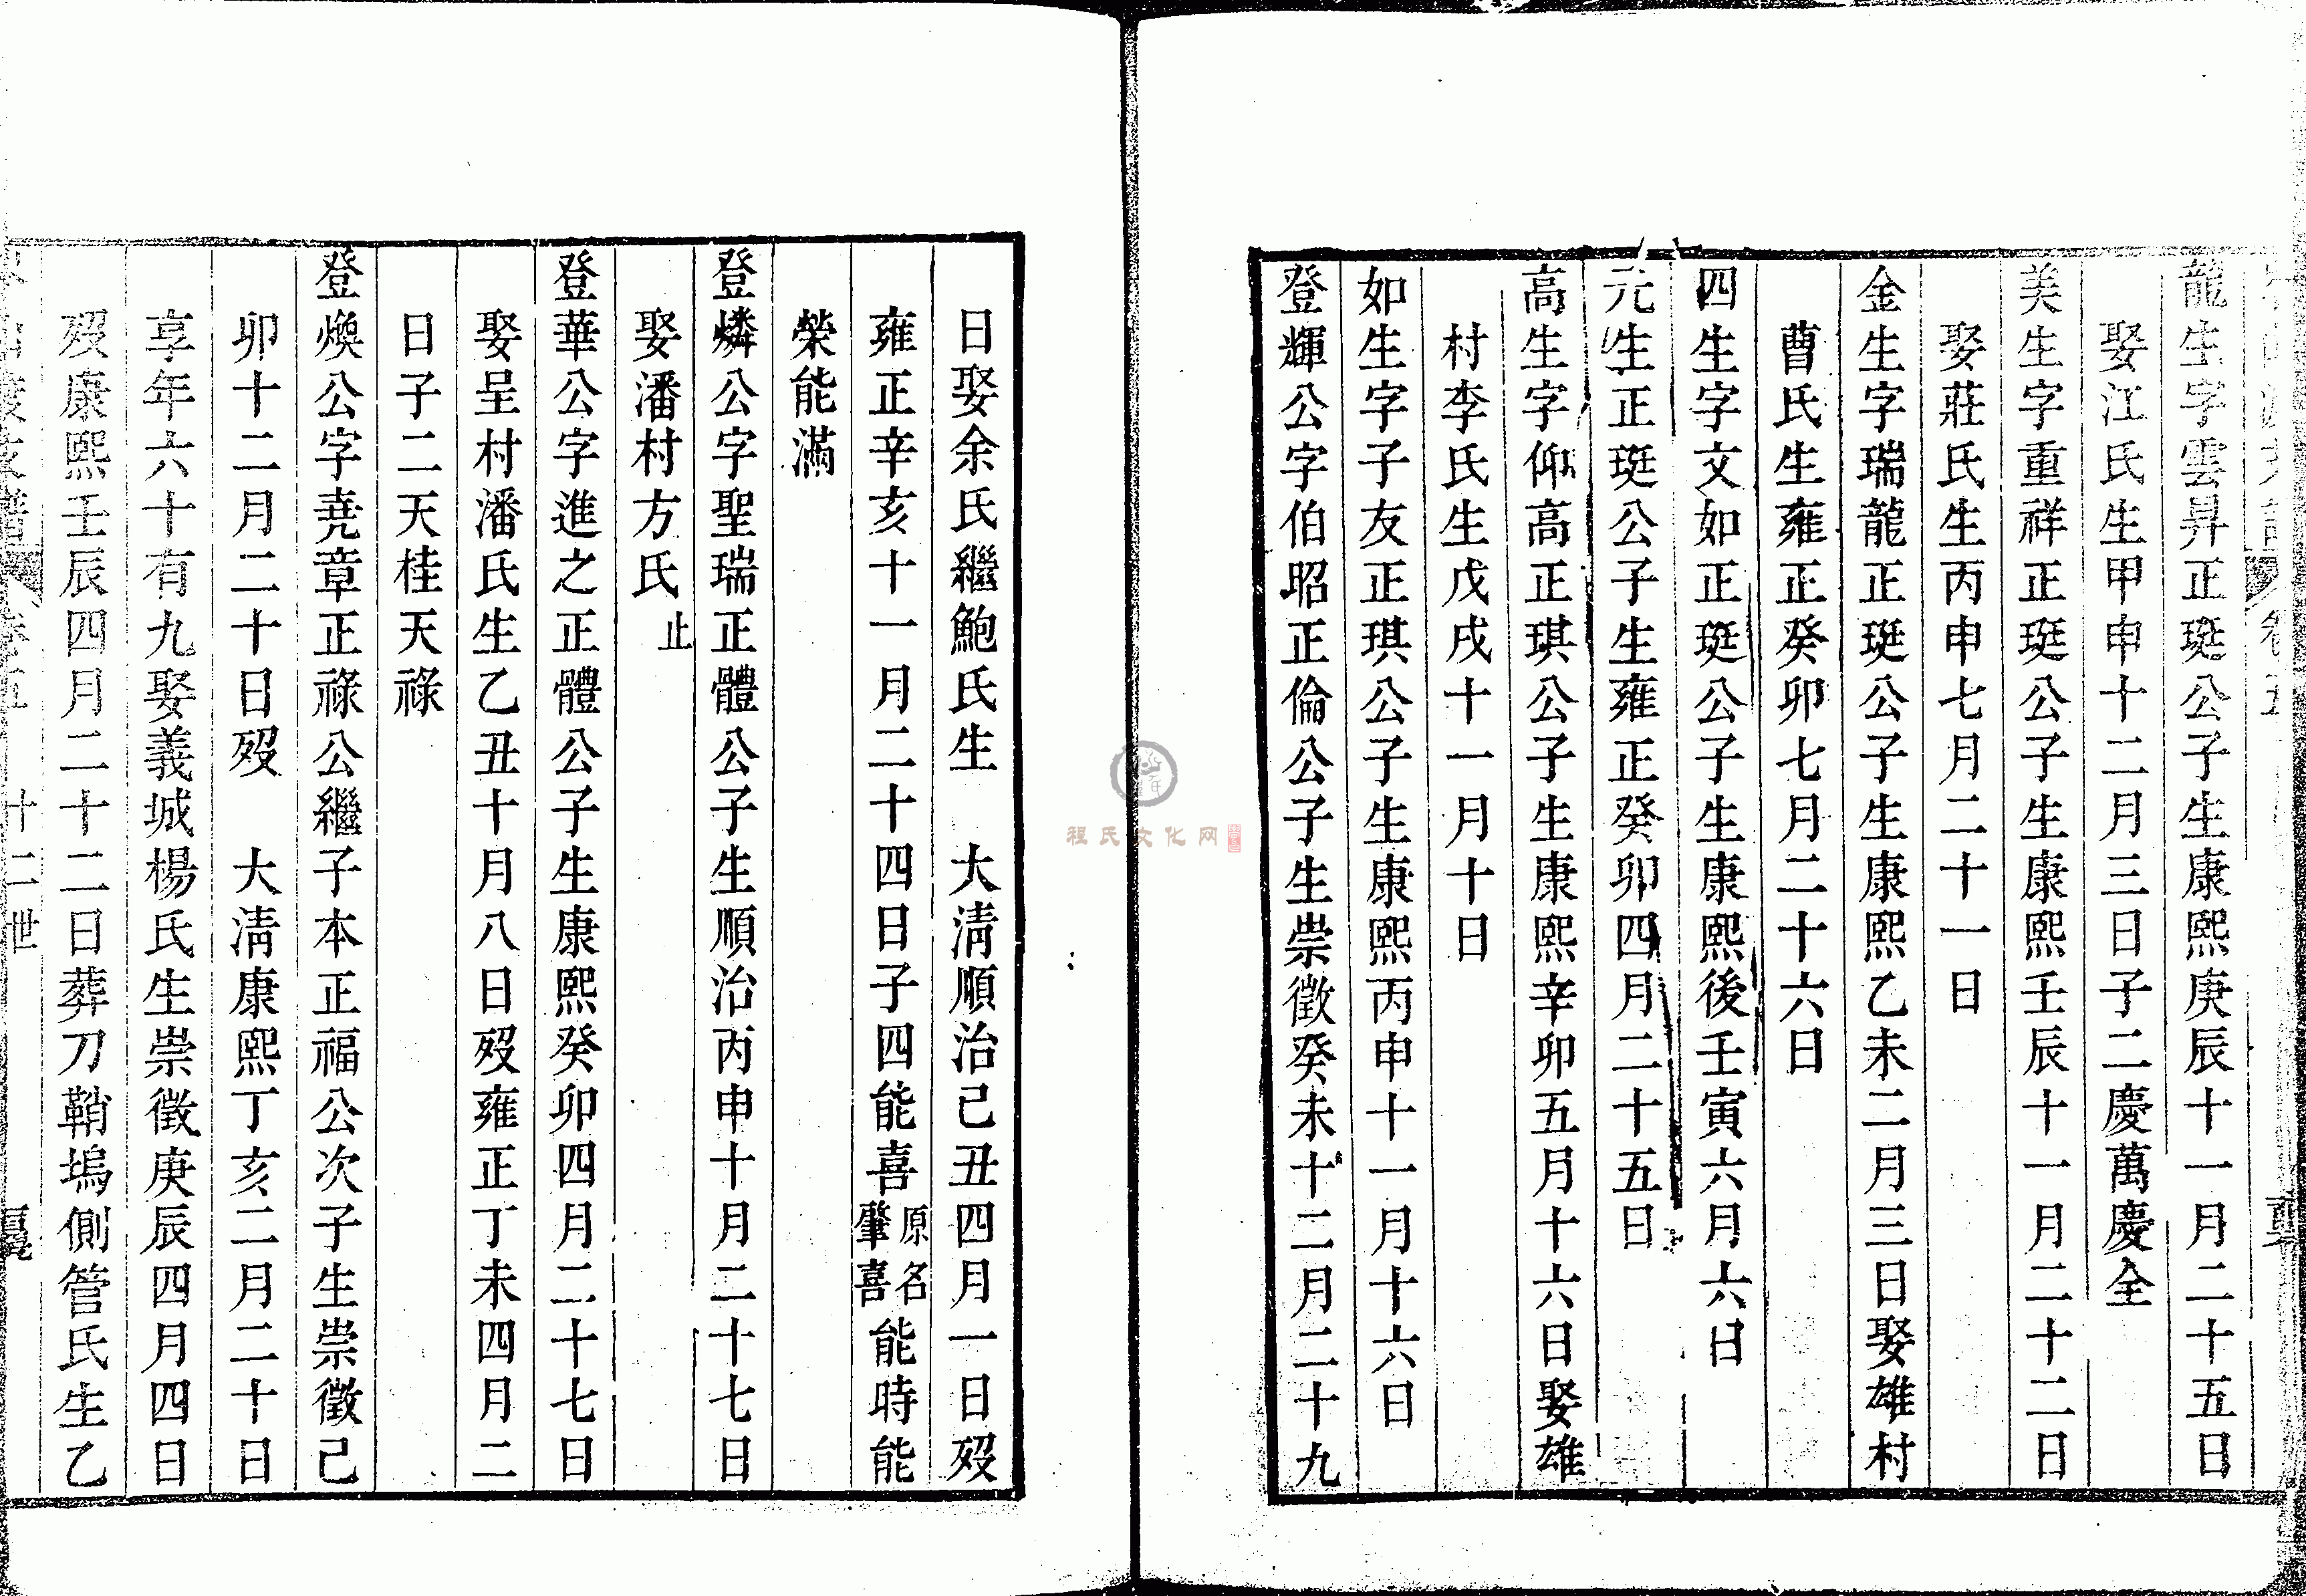 龍生字雲昇正珽公子生康熙庚辰十一月二十五日
娶江氏生甲申十二月三日子二慶萬慶全
美生字重祥正珽公子生康熙壬辰十一月二十二日
娶莊氏生丙申七月二十一日
金生字瑞龍正珽公子生康熙乙未二月三日娶雄村
曹氏生雍正癸卯七月二十六日
四生字文如正珽公子生康熙後壬寅六月六日
元生正珽公子生雍正癸卯四月二十五日
高生字仰高正琪公子生康熙辛卯五月十六日娶雄
村李氏生戊戌十一月十日
如生字子友正琪公子生康熙丙申十一月十六日
登輝公字伯昭正倫公子生崇徵癸未十二月二十九
日娶余氏繼鮑氏生 大清順治己丑四月一日歿
雍正辛亥十一月二十四日子四能喜原名肇喜能時能
榮能滿
登燐公字聖瑞正體公子生順治丙申十月二十七日
娶潘村方氏止
登華公字進之正體公子生康熙癸卯四月二十七日
娶呈村潘氏生乙丑十月八日歿雍正丁未四月二
日子二天桂天祿
登煥公字堯章正祿公繼子本正福公次子生崇徵己
卯十二月二十日歿 大清康熙丁亥二月二十日
享年六十有九娶義城楊氏生崇徵庚辰四月四日
歿康熙壬辰四月二十二日葬刀鞘塢側管氏生乙
十二世
程氏文化网